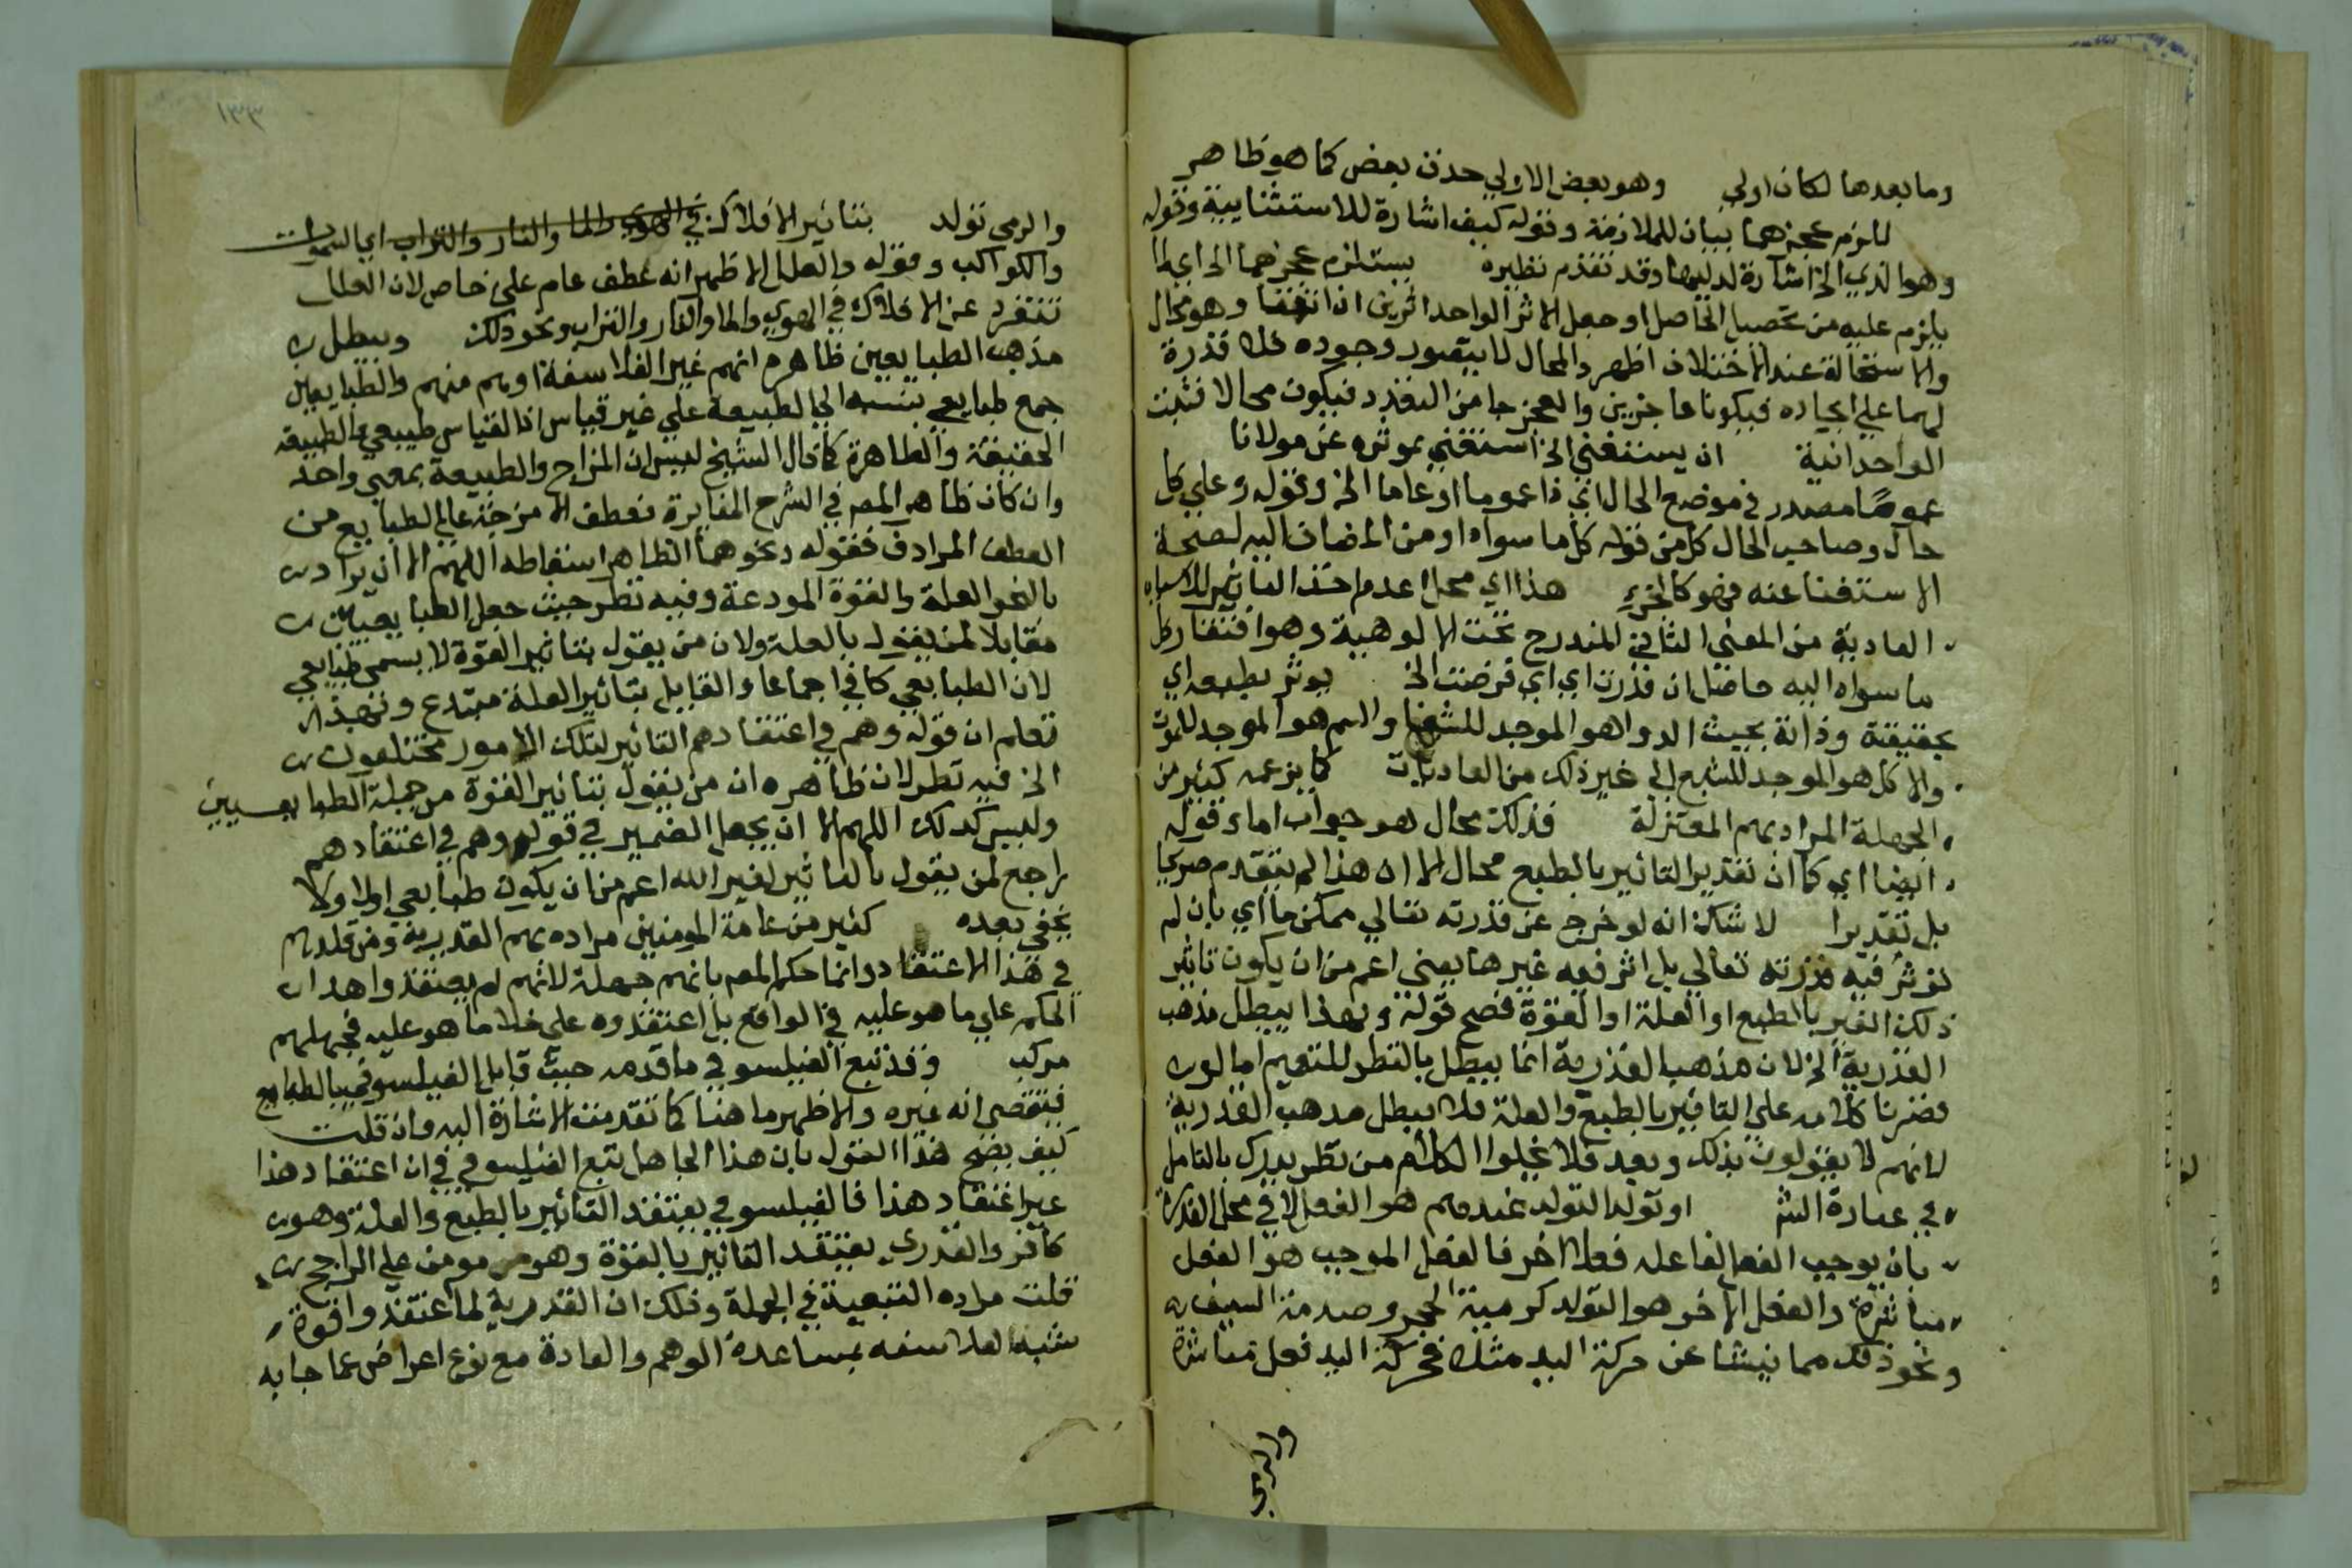 وما بعدها لكان اولي وهو بعض الاولي حذف بعض كما هو ظاهر
لما لزم عجزهما بيان للملازمة وقوله كيف اشارة للاستثنايية وقوله
وهو الذي الخ اشارة لدليلها وقد تقدم نظيره يستلزم عجزهما الخ اي لما
يلزم عليه من تحصيل الحاصل او جعل الاثر الواحد اثرين ان اتفقا وهو محال
والاستحالة عند الاختلاف اظهر والمحال لا يتصور وجوده فلا قدرة
لهما علي ايجاده فيكونا عاجزين والعجز جا من التعدد فيكون محالا فثبت
الواحدانية ان يستغني الخ استغني بموثره عن مولانا
عموما مصدر في موضع الحال اي ذا عموم او عاما الخ وقوله وعلي كل
حال وصاحب الحال كل من قوله كل ما سواه او من المضاف اليه لصحة
الاستغنا عنه فهو كالجزء هذا اي محل عدم اخذ التاثير للاسباب
العادية من المعني الثاني المندرج تحت الالوهية وهو افتقار كل
ما سواه اليه حاصل ان قدرت اي اي فرضت الخ يوثر بطبعه اي
بحقيقته وذاته بحيث الدوا هو الموجد للشفا والسم هو الموجد للموت
والاكل هو الموجد للشبع الي غير ذلك من العاديات كما يزعمه كثير من
الجهلة المراد بهم المعتزلة فذلك محال هو جواب اما وقوله
ايضا اي كما ان تقدير التاثير بالطبع محال الا ان هذا لم يتقدم صريحا
بل تقديرا لا شك انه لو خرج عن قدرته تعالي ممكن ما اي بان لم
توثر فيه قدرته تعالي بل اثر فيه غيرها يعني اعم من ان يكون تاثير
ذلك الغير بالطبع او العلة او القوة فصح قوله وبهذا يبطل مذهب
القدرية الخ لان مذهب القدرية انما يبطل بالنظر للتعميم اما لو
قصرنا كلامه علي التاثير بالطبع والعلة فلا يبطل مذهب القدرية
لانهم لا يقولون بذلك وبعد فلا يخلوا الكلام من نظر يدرك بالتامل
في عبارة الش او تولد التولد عندهم هو الفعل لا في محل القدرة
بان يوجب الفعل لفاعله فعلا اخر فالفعل الموجب هو الفعل
مباشرة والفعل الاخر هو التولد كرمية الحجر وصدمة السيف
ونحو ذلك مما ينشا عن حركة اليد مثلا فحركة اليد فعل مباشرة
والرمي
١٣٣
والرمي تولد بتاثير الافلاك في الهوي والما والنار والتراب اي السموات
والكواكب وقوله والعلل الاظهر انه عطف عام علي خاص لان العلل
تنفرد عن الافلاك في الهوي والما والنار والتراب ونحو ذلك ويبطل
مذهب الطبايعيين ظاهره انهم غير الفلاسفة او هم منهم والطبايعيين
جمع طبايعي بنسبه الي الطبيعة علي غير قياس اذ القياس طبيعي والطبيعة
الحقيقة والظاهرة كما قال الشيخ ليس ان المزاج والطبيعة بمعني واحد
وان كان ظاهر المص في الشرح المغايرة فعطف الامزجة علي الطبايع من
العطف المرادف فقوله ونحوهما الظاهر اسقاطه اللهم الا ان يراد
بالنحو العلة والقوة المودعة وفيه نظر حيث جعل الطبايعيين
مقابلا لمن يقول بالعلة ولان من يقول بتاثير القوة لا يسمي طبايعي
لان الطبايعي كافر اجماعا والقايل بتاثير العلة مبتدع وبهذا
تعلم ان قوله وهم في اعتقادهم التاثير لتلك الامور مختلفون
الخ فيه نظر لان ظاهره ان من يقول بتاثير القوة من جملة الطبايعيين
وليس كذلك اللهم الا ان يجعل الضمير في قوله وهم في اعتقادهم
راجع لمن يقول بالتاثير لغير الله اعم من ان يكون طبايعي اولا ولا
يخفي بعده كثير من عامة المومنين مراده بهم القدرية ومن قلدهم
في هذا الاعتقاد وانما حكم المص بانهم جهلة لانهم لم يعتقدوا هذا
الحكم علي ما هو عليه في الواقع بل اعتقدوه علي خلاف ما هو عليه فجهلهم
مركب وقد تبع الفيلسوفي ما قدمه حيث قابل الفيلسوفي بالطبايع
فيقتضي انه غيره والاظهر ما هنا كما تقدمت الاشارة اليه وان قلت
كيف يصح هذا القول بان هذا الجاهل تبع الفيلسوفي في ان اعتقاد هذا
غير اعتقاد هذا فالفيلسوفي يعتقد التاثير بالطبع والعلة وهو
كافر والقدري يعتقد التاثير بالقوة وهو مومن علي الراجح
قلت مراده التبعية في الجملة وذلك ان القدرية لما اعتقدوا قوة
شبه الفلاسفه بمساعدة الوهم والعادة مع نوع اعراض عما جا به